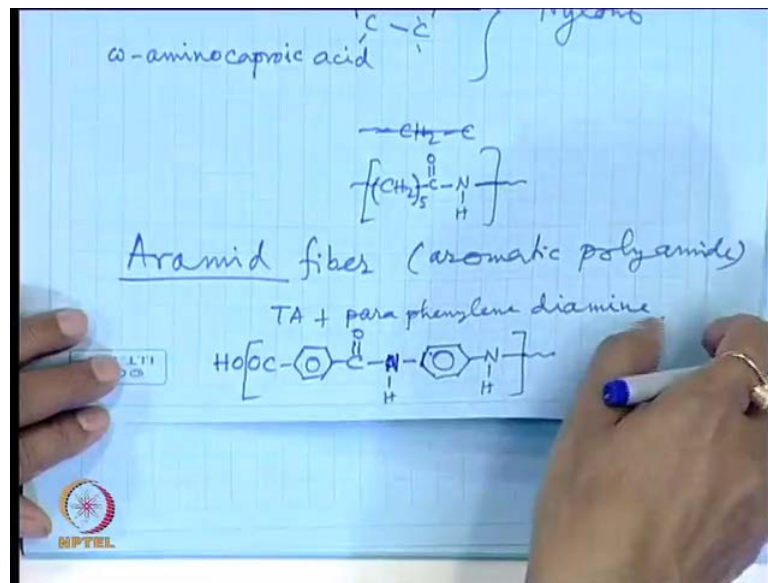 C - C Nylons
ω-aminocaproic acid
-CH2-C
[(CH2)5-C-N]
O
H
Aramid fiber (aromatic polyamide)
TA + para phenylene diamine
O
HO[OC- -C-N- -N-]
H H
NPTEL